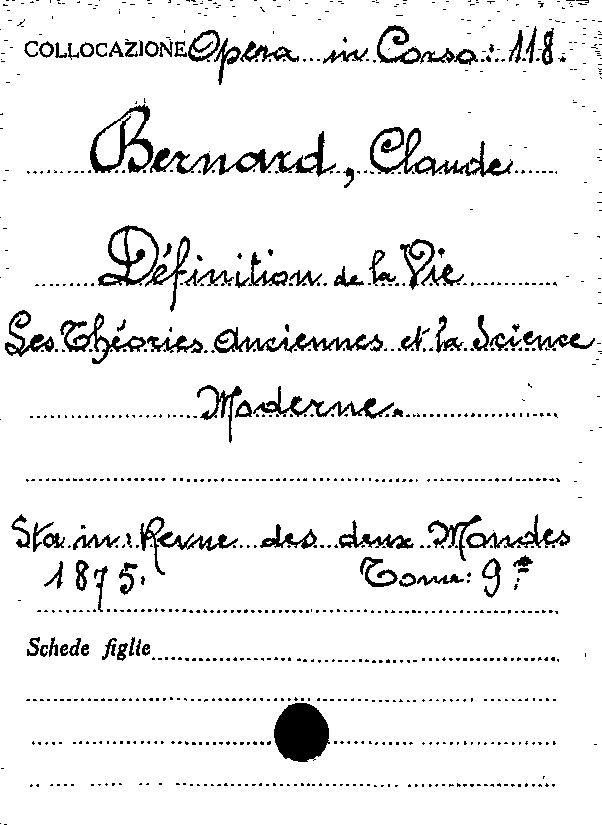 COLLOCAZIONE Opera in Corso: 118.
Bernard, Claude
Définition de la Vie
Les Théories Anciennes et la Science
Moderne.
Sta in: Revue des deux Mondes
1875. Tome: 9e
Schede figlie